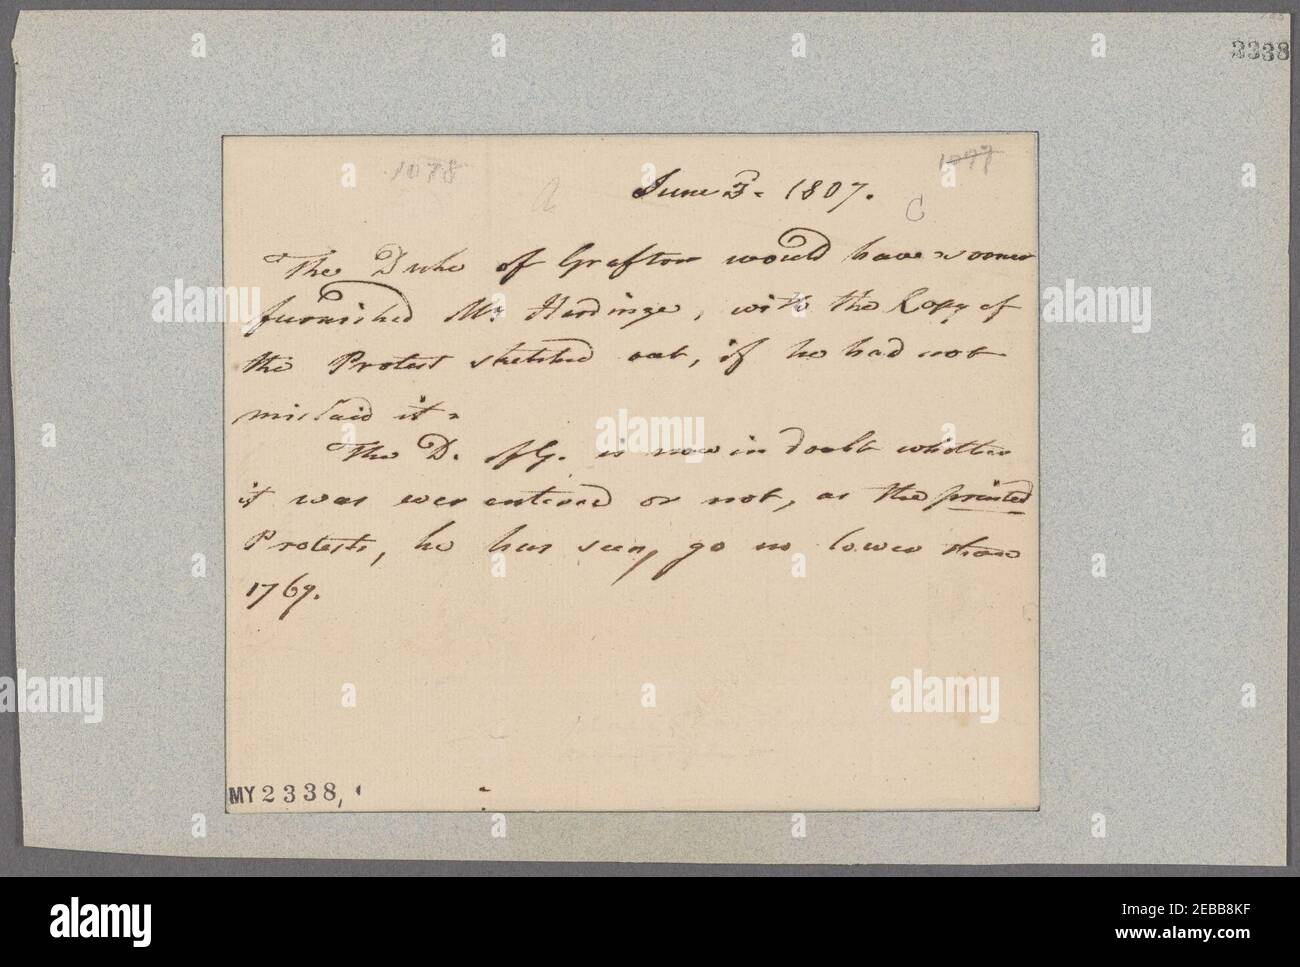 2338
1078
1077
June 3. 1807.
a
C
The Duke of Grafton would have sooner
furnished Mr Hardinge, with the Copy of
the Protest sketched out, if he had not
mislaid it.
The D. of G. is now in doubt whether
it was ever entered or not, as the printed
Protests, he has seen, go no lower than
1769.
MY 2338
alamy
Image ID: 2EBB8KF
www.alamy.com